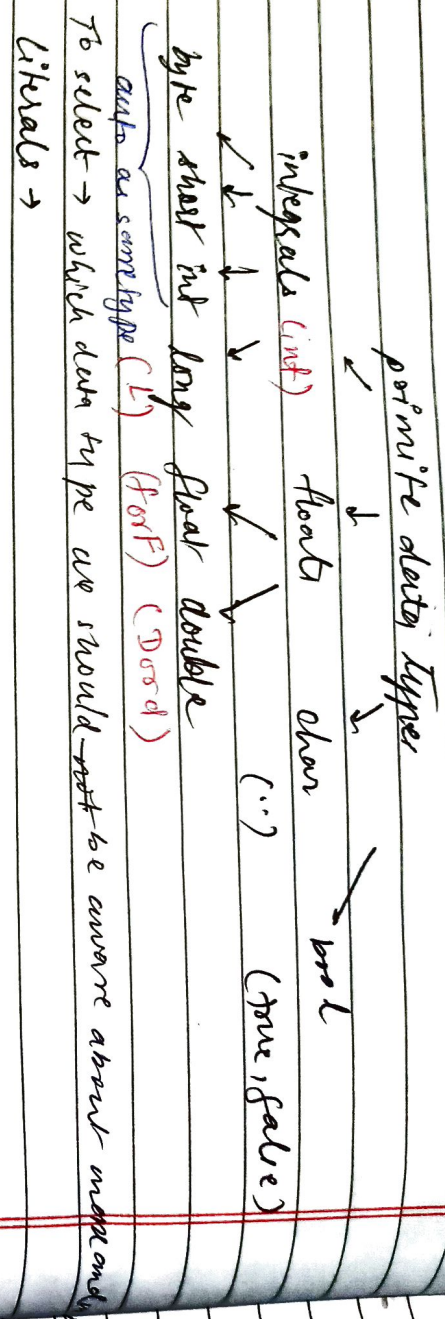 primite data types
integrals (int) floats char bool
('') (true, false)
byte short int long float double
auto as same type (L) (f or F) (D or d)
To select → which data type we should not be aware about
Literals →